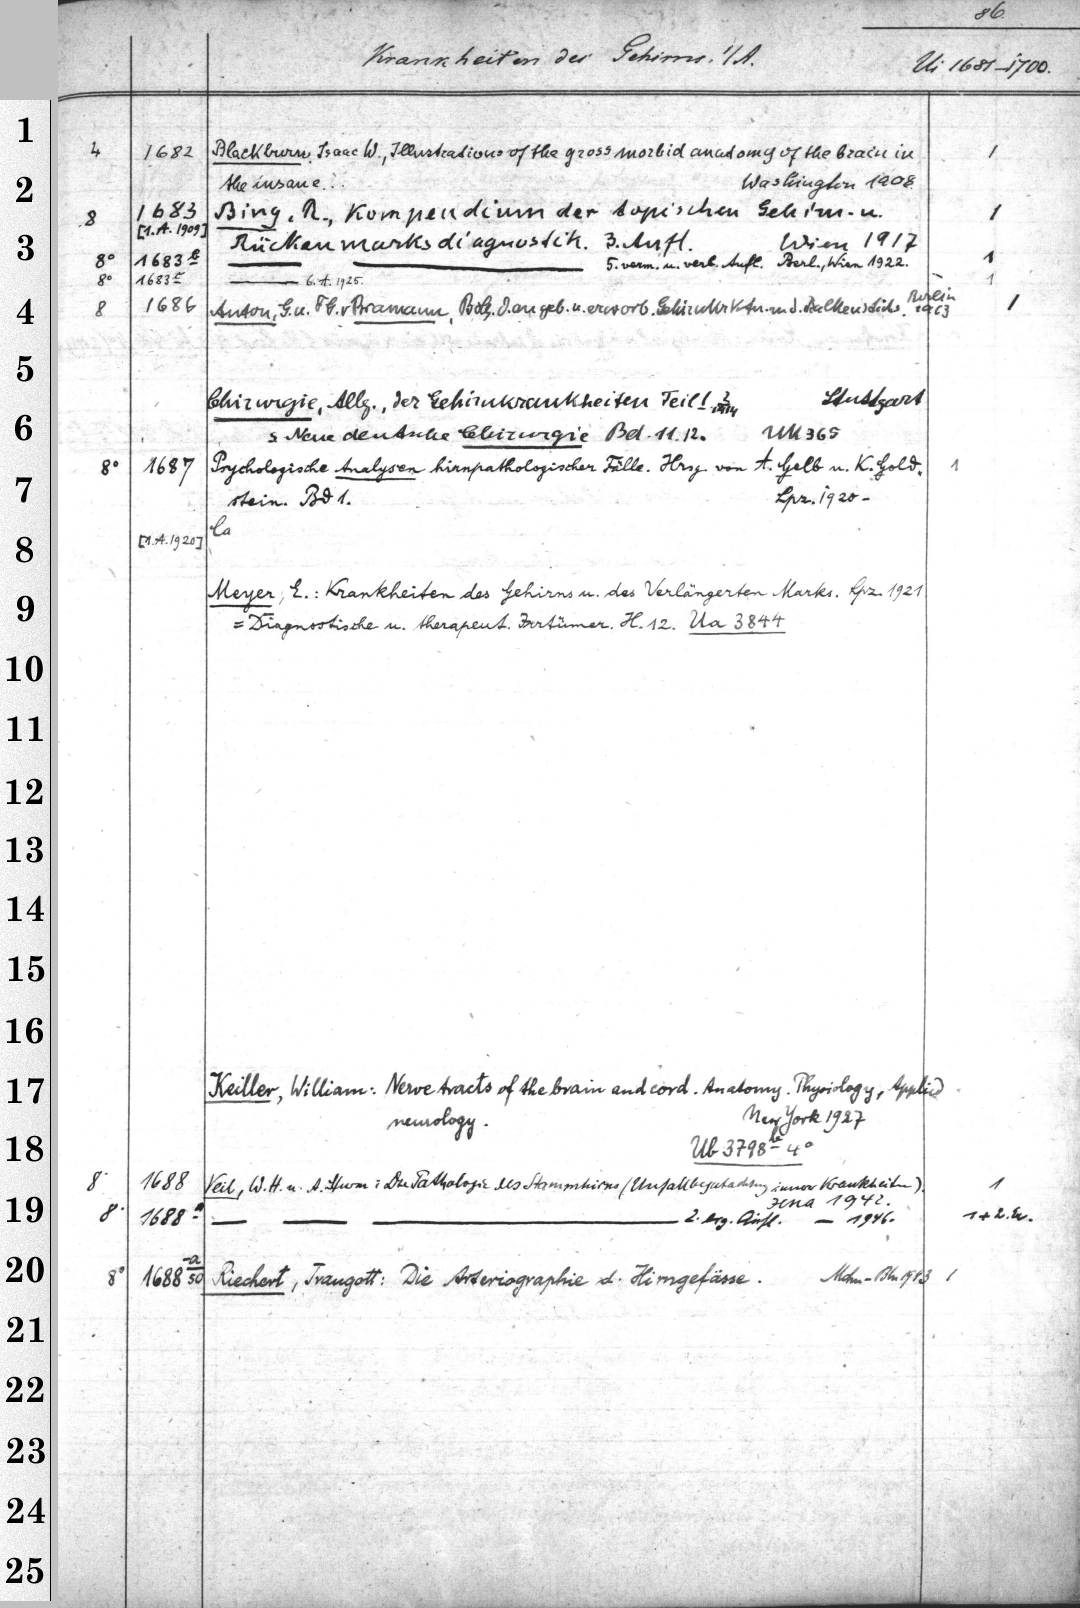 86
Krankheiten des Gehirns. 1/A. Ui 1681-1700.
1
4 1682 Blackburn, Isaac W., Illustrations of the gross morbid anatomy of the brain in 1
2 the insane. Washington 1908
8 1683 Bing, R., Kompendium der topischen Gehirn- u. 1
[1.A.1909] Rückenmarksdiagnostik. 3. Aufl. Wien 1917
3
8° 1683 b 5. verm. u. verb. Aufl. Berl., Wien 1922. 1
8° 1683 c 6. A. 1925. 1
4 8 1686 Anton, G. u. v. Bramann, d. angeb. u. erworb. Balkenstichs. Berlin 1913 1
5
Chirurgie, Allg., der Gehirnkrankheiten Teil 1 Stuttgart
6 = Neue deutsche Chirurgie Bd. 11. 12. UK 365
8° 1687 Psychologische Analysen hirnpathologischer Fälle. Hrsg. von A. Gelb u. K. Gold- 1
7 stein. Bd 1. Lpz. 1920-
8 [1.A.1920] Ca
9 Meyer, E.: Krankheiten des Gehirns u. des Verlängerten Marks. Lpz. 1921
= Diagnostische u. therapeut. Irrtümer. H. 12. Ua 3844
10
11
12
13
14
15
16
17 Keiller, William: Nerve tracts of the brain and cord. Anatomy. Physiology, Applied
neurology. New York 1927
18 Ub 3798 4°
8° 1688 Veil, W. H. u. A. Sturm: Die Pathologie des Stammhirns (Unfallbegutachtung innerer Krankheiten). 1
Jena 1942.
19 8° 1688 a 2. erg. Aufl. — 1946. 1+2. Ex.
20 8° 1688 a/50 Riechert, Traugott: Die Arteriographie d. Hirngefässe. Mchn-Bln 1943 1
21
22
23
24
25